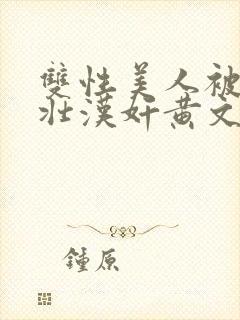 雙性美人被
壯漢奸黃文
鍾原